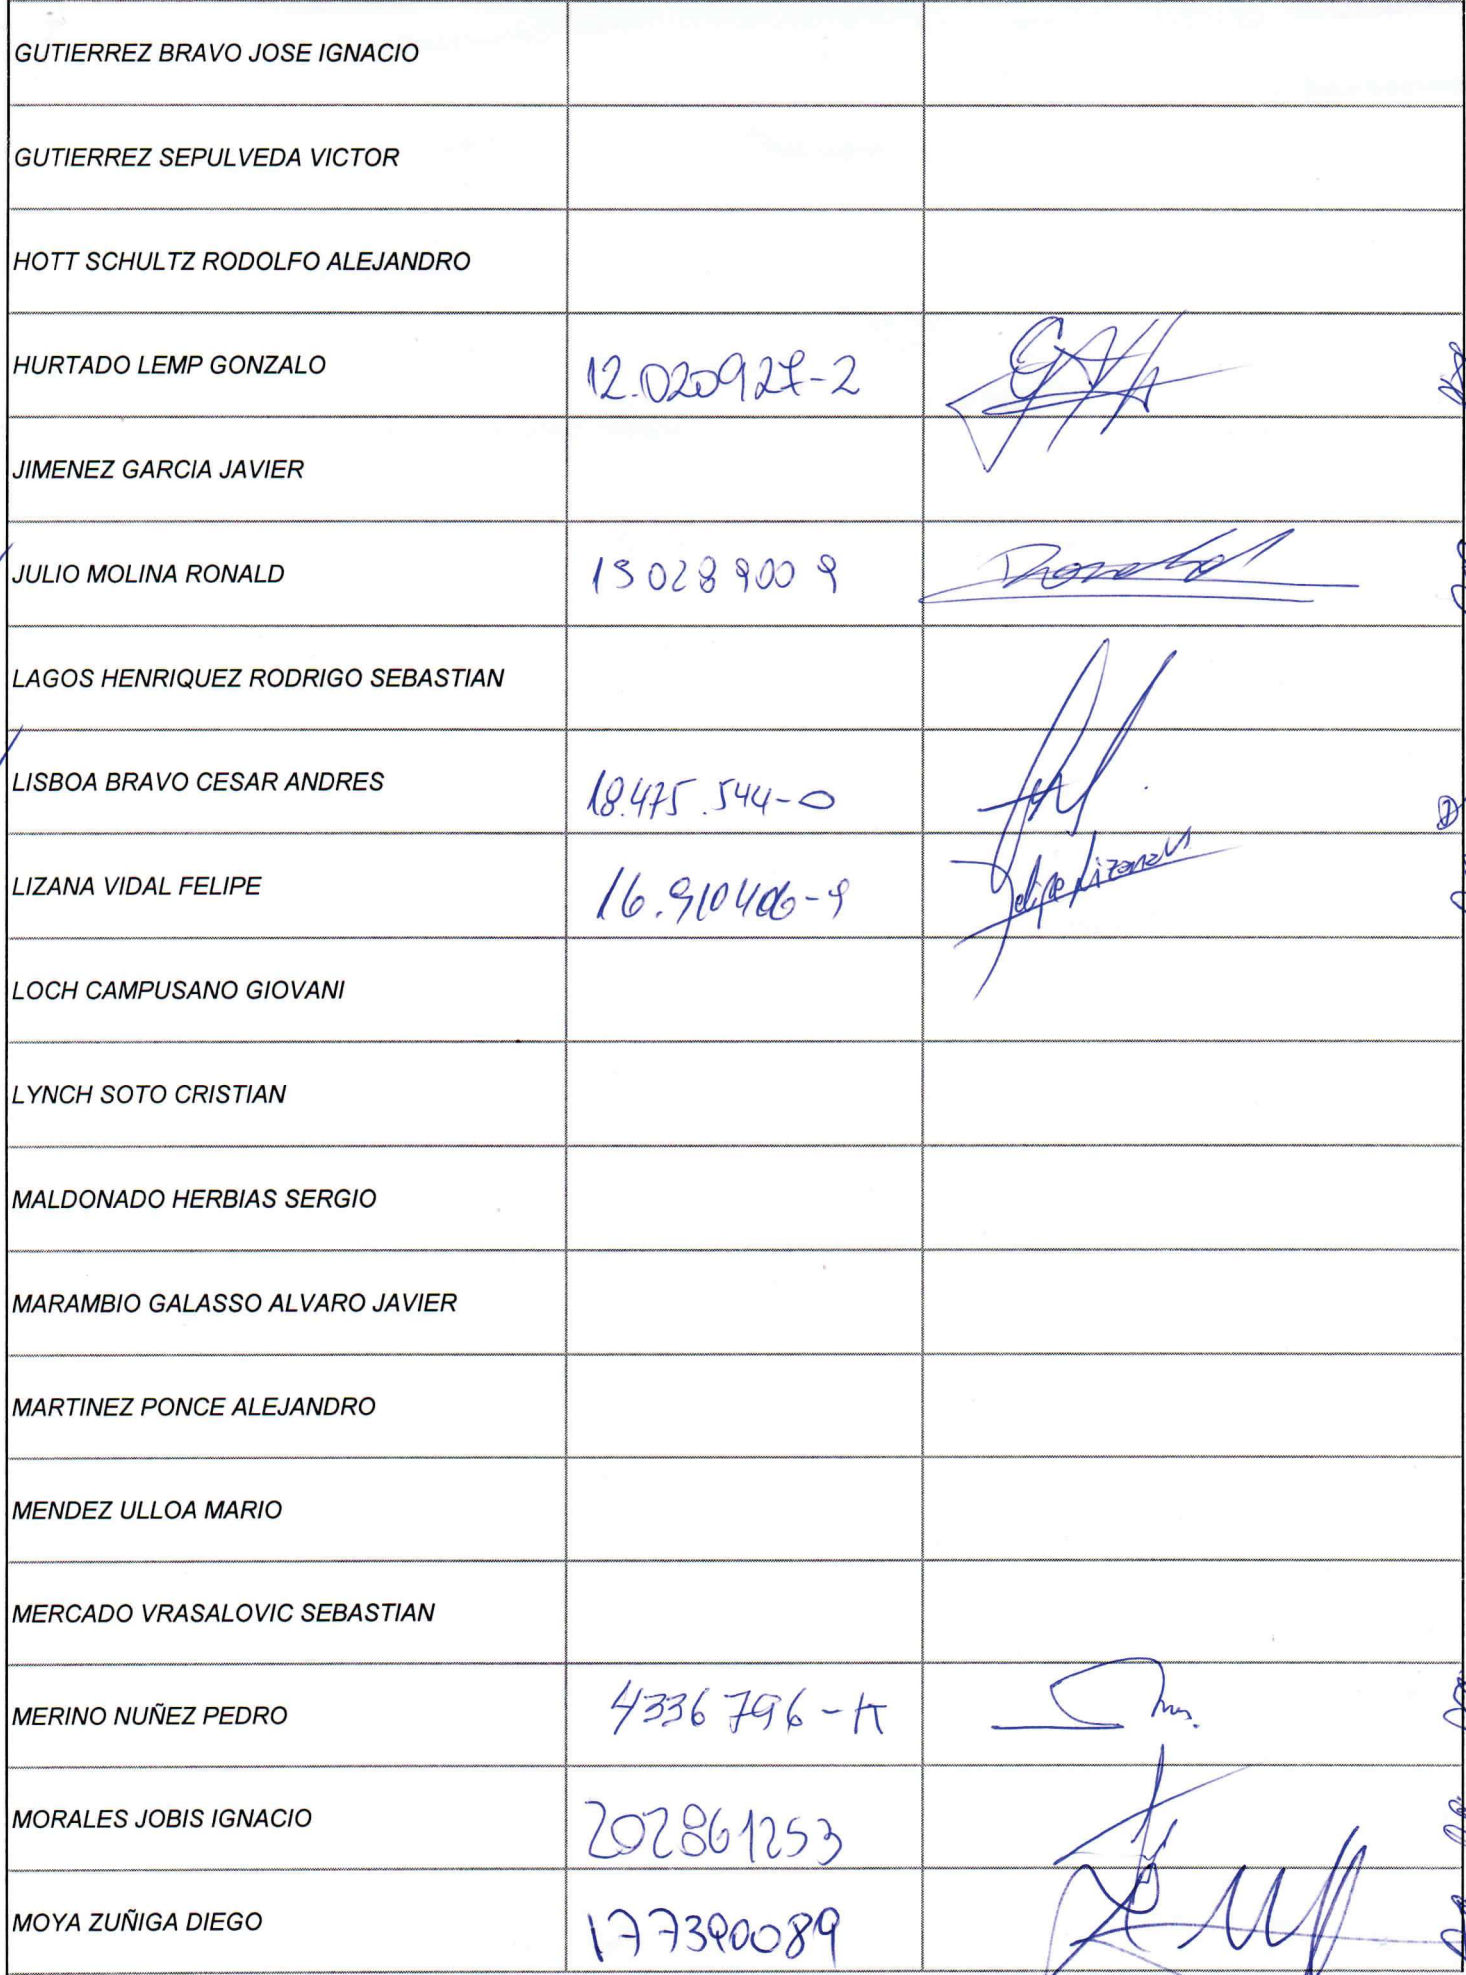 GUTIERREZ BRAVO JOSE IGNACIO
GUTIERREZ SEPULVEDA VICTOR
HOTT SCHULTZ RODOLFO ALEJANDRO
HURTADO LEMP GONZALO 12.020927-2
JIMENEZ GARCIA JAVIER
JULIO MOLINA RONALD 15028900 9
LAGOS HENRIQUEZ RODRIGO SEBASTIAN
LISBOA BRAVO CESAR ANDRES 18.475.544-0
LIZANA VIDAL FELIPE 16.910406-9 Felipe Lizana V
LOCH CAMPUSANO GIOVANI
LYNCH SOTO CRISTIAN
MALDONADO HERBIAS SERGIO
MARAMBIO GALASSO ALVARO JAVIER
MARTINEZ PONCE ALEJANDRO
MENDEZ ULLOA MARIO
MERCADO VRASALOVIC SEBASTIAN
MERINO NUÑEZ PEDRO 4336796-K
MORALES JOBIS IGNACIO 202861253
MOYA ZUÑIGA DIEGO 177390089